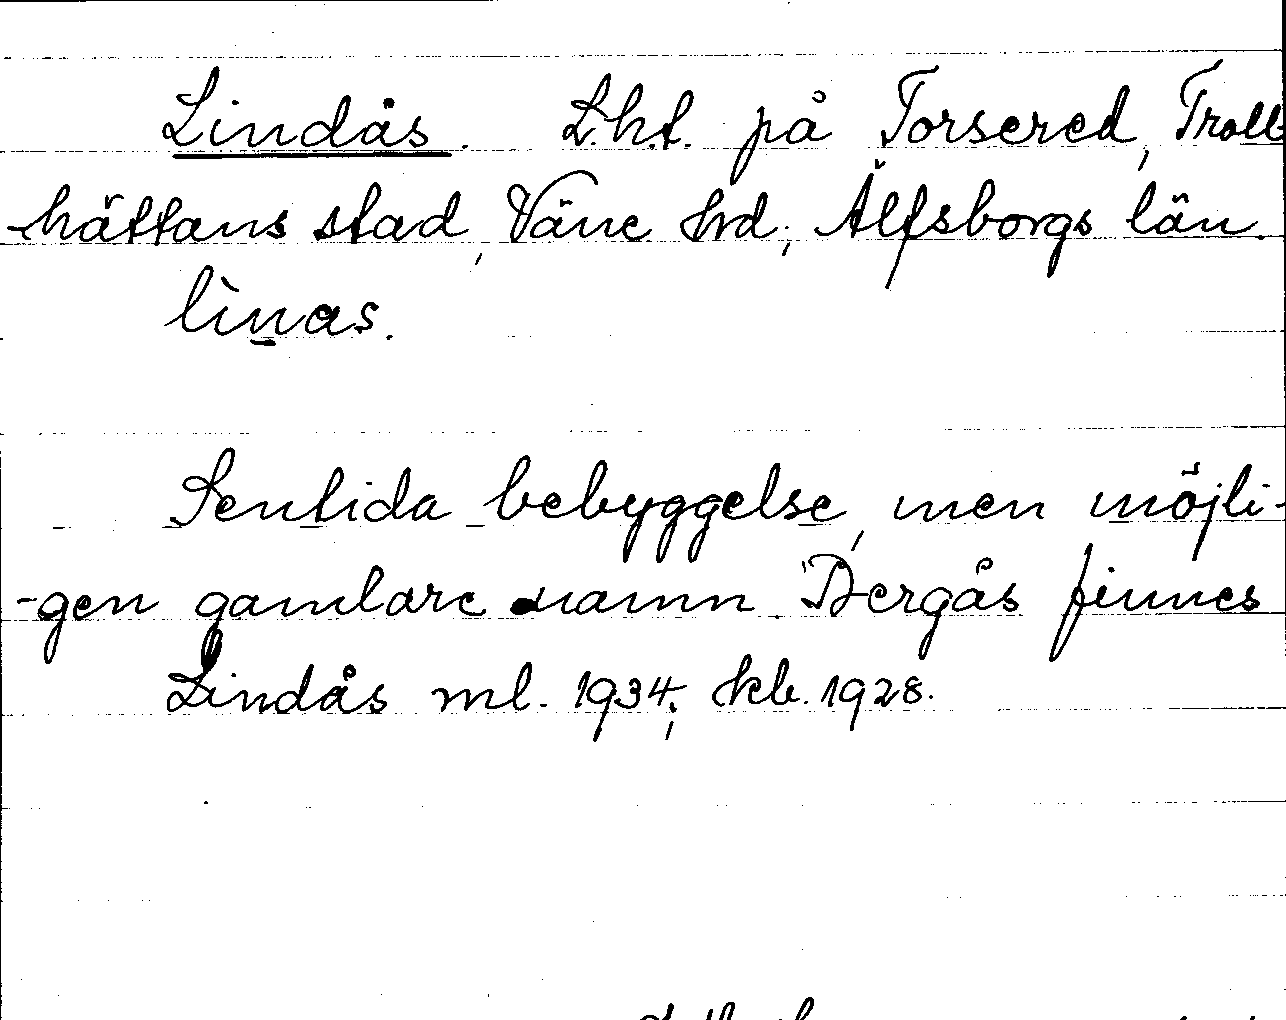 Lindås. L.h.t. på Torsered, Troll
-hättans stad, Väne hrd; Älfsborgs län.
lìnas.
Sentida bebyggelse, men möjli-
-gen gamlare namn. Bergås finnes
Lindås ml. 1934; kb. 1928.